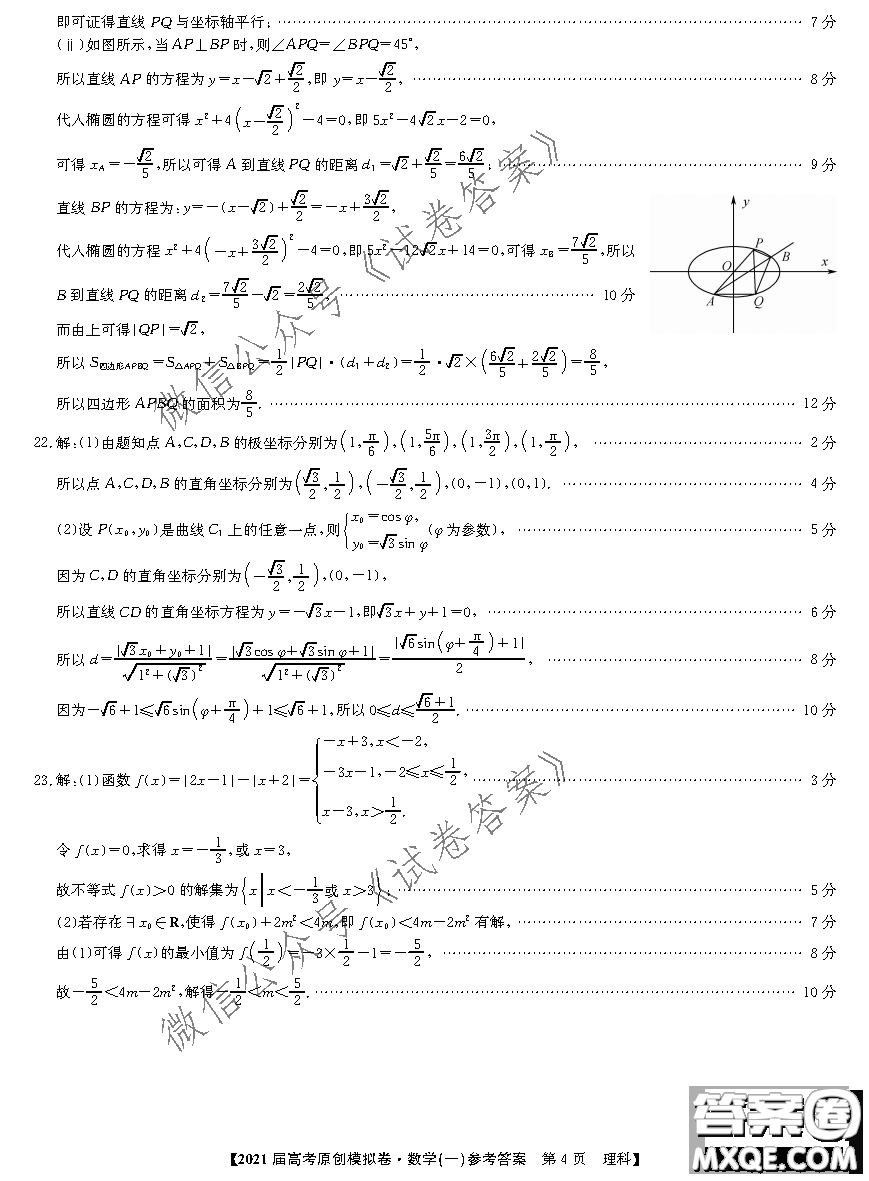 即可证得直线 PQ 与坐标轴平行; …… 7 分
(ⅱ)如图所示,当 AP⊥BP 时,则∠APQ=∠BPQ=45°,
所以直线 AP 的方程为 y=x-√2+√2/2,即 y=x-√2/2, …… 8 分
代入椭圆的方程可得 x²+4(x-√2/2)²-4=0,即 5x²-4√2x-2=0,
可得 x_A=-√2/5,所以可得 A 到直线 PQ 的距离 d₁=√2+√2/5=6√2/5, …… 9 分
直线 BP 的方程为:y=-(x-√2)+√2/2=-x+3√2/2,
代入椭圆的方程 x²+4(-x+3√2/2)²-4=0,即 5x²-12√2x+14=0,可得 x_B=7√2/5,所以
B 到直线 PQ 的距离 d₂=7√2/5-√2=2√2/5, …… 10 分
而由上可得|QP|=√2,
所以 S四边形APBQ=S△APQ+S△BPQ=1/2|PQ|·(d₁+d₂)=1/2·√2×(6√2/5+2√2/5)=8/5,
所以四边形 APBQ 的面积为8/5. …… 12 分
y
P
B
O
x
A
Q
22.解:(1)由题知点 A,C,D,B 的极坐标分别为(1,π/6),(1,5π/6),(1,3π/2),(1,π/2), …… 2 分
所以点 A,C,D,B 的直角坐标分别为(√3/2,1/2),(-√3/2,1/2),(0,-1),(0,1). …… 4 分
(2)设 P(x₀,y₀)是曲线 C₁ 上的任意一点,则{x₀=cos φ, y₀=√3sin φ (φ为参数), …… 5 分
因为 C,D 的直角坐标分别为(-√3/2,1/2),(0,-1),
所以直线 CD 的直角坐标方程为 y=-√3x-1,即√3x+y+1=0, …… 6 分
所以 d=|√3x₀+y₀+1|/√(1²+(√3)²)=|√3cos φ+√3sin φ+1|/√(1²+(√3)²)=|√6sin(φ+π/4)+1|/2, …… 8 分
因为-√6+1≤√6sin(φ+π/4)+1≤√6+1,所以 0≤d≤(√6+1)/2. …… 10 分
23.解:(1)函数 f(x)=|2x-1|-|x+2|={-x+3,x<-2, -3x-1,-2≤x≤1/2, x-3,x>1/2. …… 3 分
令 f(x)=0,求得 x=-1/3,或 x=3,
故不等式 f(x)>0 的解集为{x|x<-1/3或 x>3}; …… 5 分
(2)若存在∃x₀∈R,使得 f(x₀)+2m²<4m,即 f(x₀)<4m-2m² 有解, …… 7 分
由(1)可得 f(x)的最小值为 f(1/2)=-3×1/2-1=-5/2, …… 8 分
故-5/2<4m-2m²,解得-1/2<m<5/2. …… 10 分
微信公众号《试卷答案》
微信公众号《试卷答案》
【2021 届高考原创模拟卷·数学(一)参考答案 第 4 页 理科】
答案圈
MXQE.COM